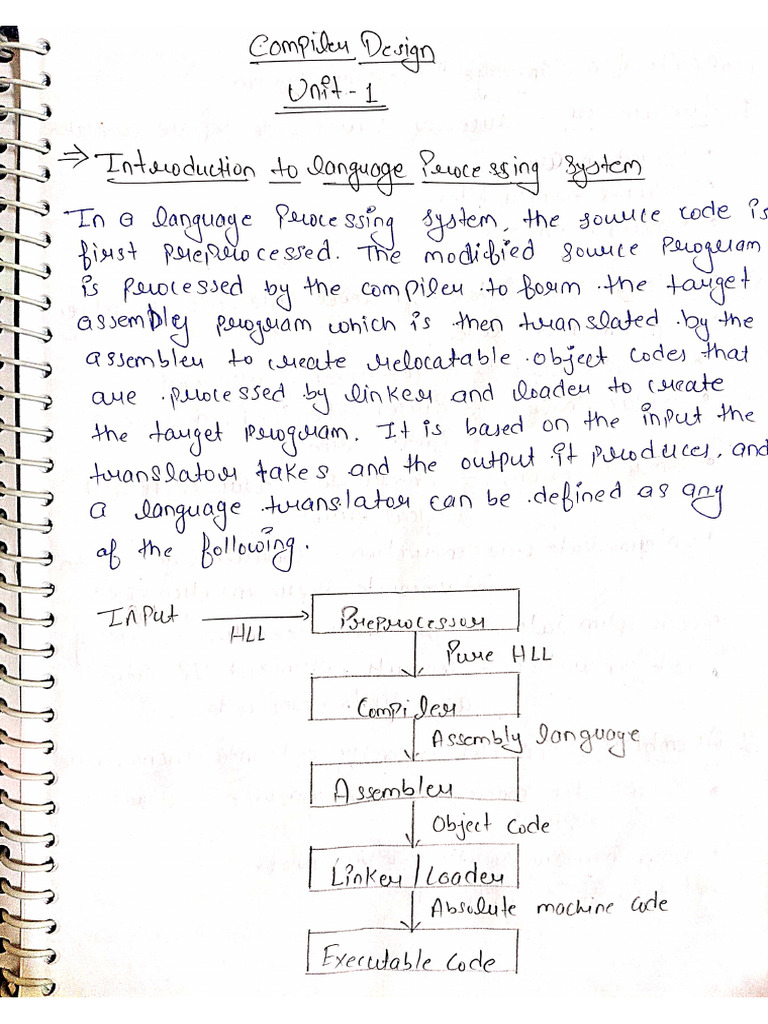 Compiler Design
Unit-1
⇒ Introduction to language Processing System
In a language Processing system, the source code is
first preprocessed. The modified source program
is processed by the compiler to form the target
assembly program which is then translated by the
assembler to create relocatable object codes that
are processed by linker and loader to create
the target program. It is based on the input the
translator takes and the output it produces, and
a language translator can be defined as any
of the following.
Input
HLL
Preprocessor
Pure HLL
Compiler
Assembly language
Assembler
Object code
Linker/Loader
Absolute machine code
Executable Code